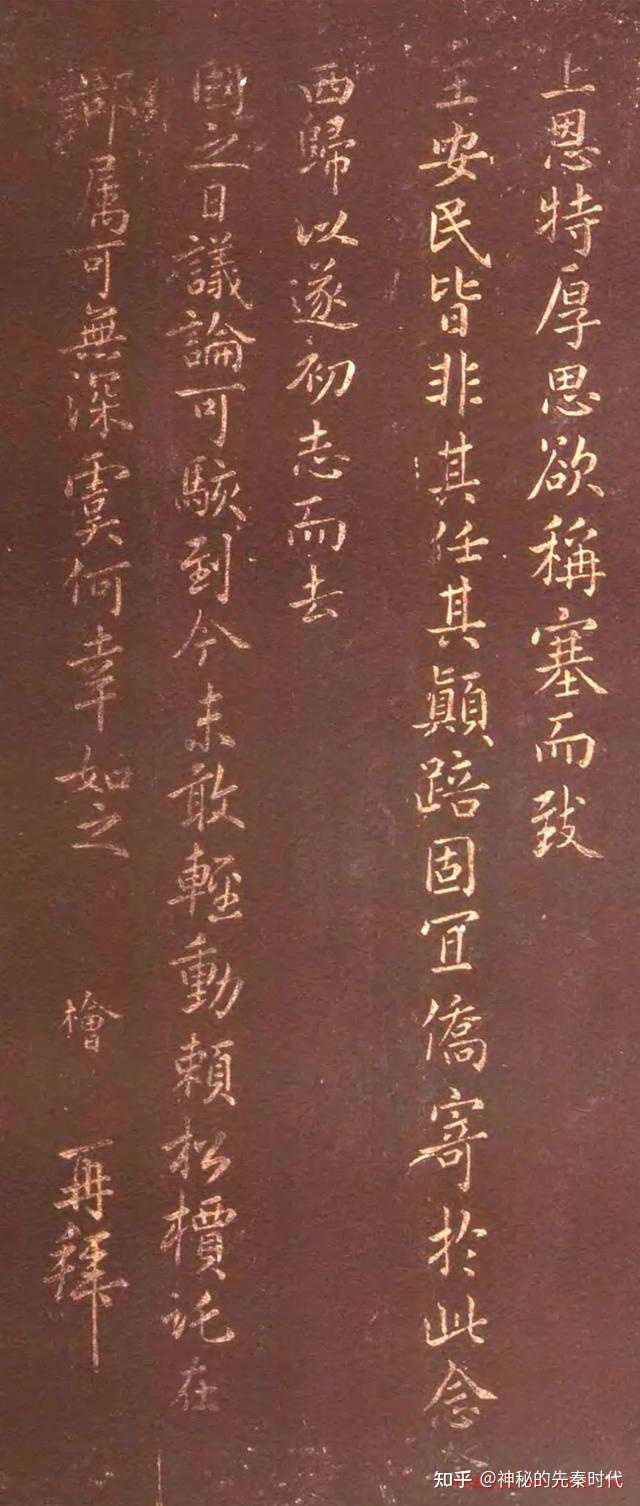 上恩特厚思欲稱塞而致
主安民皆非其任其顛踣固宜僑寄於此念
西歸以遂初志而去
國之日議論可駭到今未敢輕動賴松檟託在
鄰属可無深虞何幸如之 檜 再拜
知乎 @神秘的先秦时代